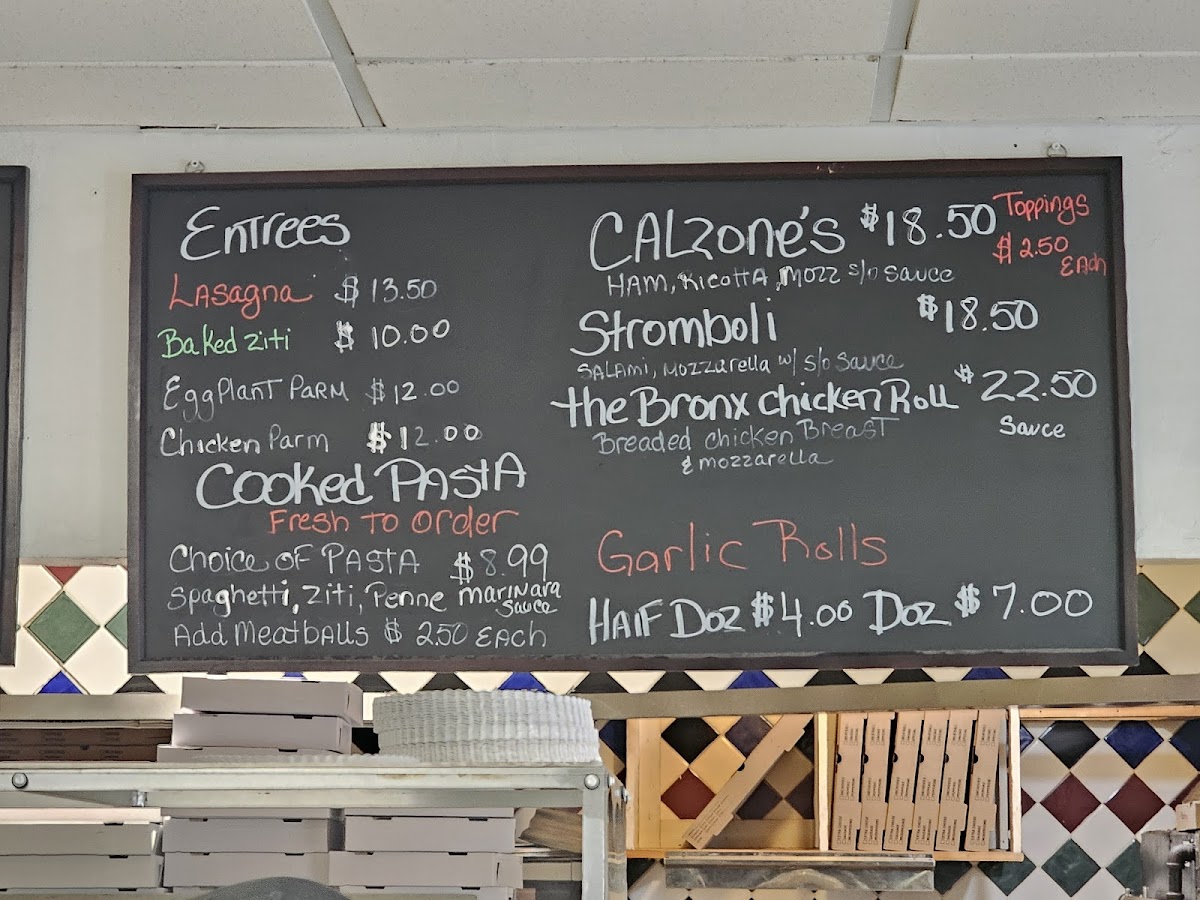 Entrees
Lasagna $13.50
Baked Ziti $10.00
EggPlant Parm $12.00
Chicken Parm $12.00
Cooked Pasta
Fresh To Order
Choice of Pasta $8.99
Spaghetti, Ziti, Penne marinara
sauce
Add Meatballs $2.50 Each
CALzone's $18.50
Toppings
$2.50
Each
Ham, Ricotta, Mozz s/o sauce
Stromboli $18.50
Salami, Mozzarella w/ s/o sauce
the Bronx chicken Roll $22.50
Sauce
Breaded chicken Breast
& mozzarella
Garlic Rolls
Half Doz $4.00 Doz $7.00